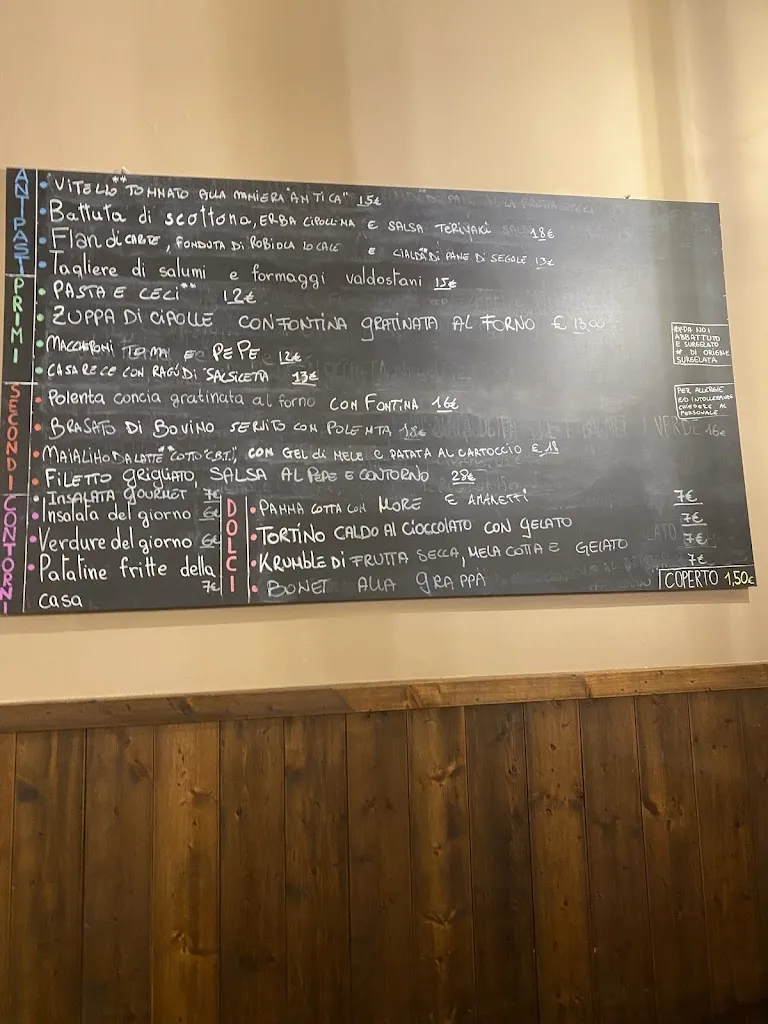 ANTIPASTI
• VITELLO** TONNATO ALLA MANIERA "ANTICA" 15€
• Battuta di scottona, ERBA CIPOLLINA E SALSA TERIYAKI 18€
• Flan di CARTE, FONDUTA DI ROBIOLA LOCALE E CIALDA** DI PANE DI SEGALE 13€
• Tagliere di salumi e formaggi valdostani 15€
PRIMI
• PASTA E CECI** 12€
• ZUPPA DI CIPOLLE CON FONTINA GRATINATA AL FORNO € 13,00
• MACCHERONI E PEPE 12€
• CASARECE CON RAGÙ DI SALSICCIA 13€
SECONDI
• Polenta concia gratinata al forno CON FONTINA 16€
• BRASATO DI BOVINO SERVITO CON POLENTA 18€
• MAIALINO DA LATTE** COTTO C.B.T., CON GEL DI MELE E PATATA AL CARTOCCIO € 18
• FILETTO GRIGLIATO, SALSA AL PEPE E CONTORNO 28€
CONTORNI
• INSALATA GOURMET 7€
• Insalata del giorno 6€
• Verdure del giorno 6€
• Patatine fritte della
casa 7€
DOLCI
• PANNA COTTA CON MORE E AMARETTI 7€
• TORTINO CALDO AL CIOCCOLATO CON GELATO 7€
• KRUMBLE DI FRUTTA SECCA, MELA COTTA E GELATO 7€
• BONET ALLA GRAPPA 7€
DA NOI
ABBATTUTO
E SURGELATO
* DI ORIGINE
SURGELATA
PER ALLERGIE
E/O INTOLLERANZE
CHIEDERE AL
PERSONALE
VERDE 16€
COPERTO 1,50€